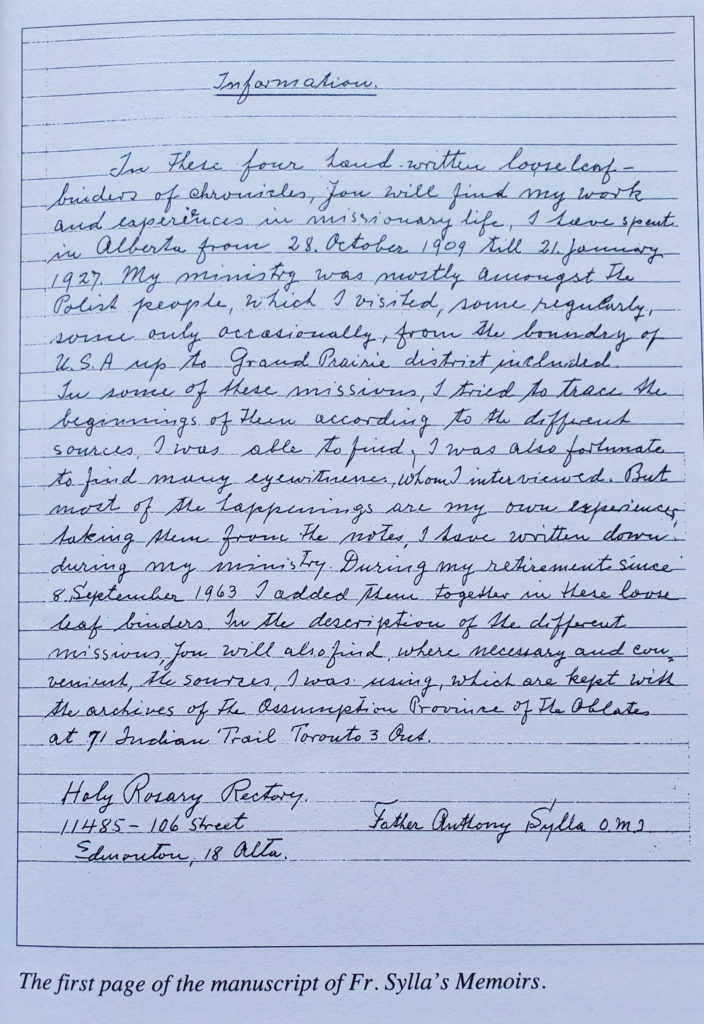 Information.
In these four hand-written looseleaf-
binders of chronicles, You will find my work
and experiences in missionary life, I have spent
in Alberta from 28. October 1909 till 21. January
1927. My ministry was mostly amongst the
Polish people, which I visited, some regularly,
some only occasionally, from the boundry of
U.S.A up to Grand Prairie district included.
In some of these missions, I tried to trace the
beginnings of them according to the different
sources, I was able to find, I was also fortunate
to find many eyewitnesses, whom I interviewed. But
most of the happenings are my own experiences,
taking them from the notes, I have written down
during my ministry. During my retirement since
8. September 1963 I added them together in these loose
leaf binders. In the description of the different
missions, You will also find, where necessary and con-
venient, the sources, I was using, which are kept with
the archives of the Assumption Province of the Oblates
at 71 Indian Trail Toronto 3 Ont.
Holy Rosary Rectory.
11485 - 106 Street Father Anthony Sylla O.M.I
Edmonton, 18 Alta.
The first page of the manuscript of Fr. Sylla's Memoirs.